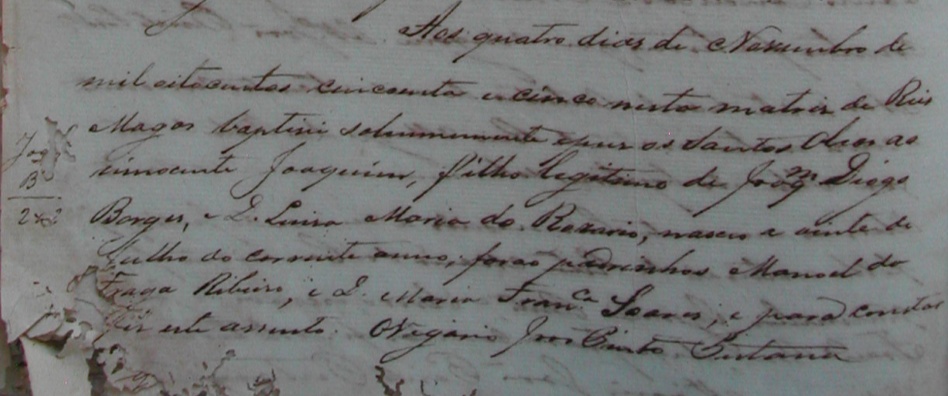 Aos quatro dias de Novembro de
mil oitocentos cincoenta e cinco nesta matriz de Reis
Magos baptisei solemnemente e puz os Santos Oleos ao
innocente Joaquim, filho legitimo de Joaqm Diogo
Borges, e D. Luisa Maria do Rozario, nasceu a vinte de
Julho do corrente anno, forão padrinhos Manoel do
Fraga Ribeiro, e D. Maria Franca Soares, e para constar
fiz este assento. O Vigario Pinto